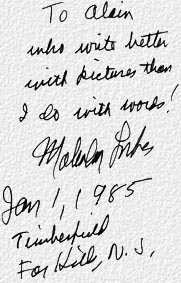 To Alain
who writes better
with pictures than
I do with words!
Malcolm Forbes
Jan 1, 1985
Timberfield
Far Hills, N.J.